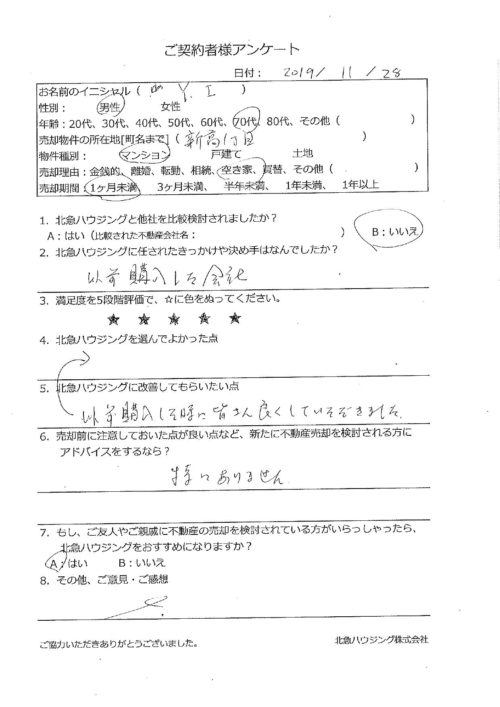 ご契約者様アンケート
日付： 2019/ 11 / 28
お名前のイニシャル（ Y. I ）
性別： 男性 女性
年齢：20代、30代、40代、50代、60代、70代、80代、その他（ ）
売却物件の所在地[町名まで]（ 新高1丁目 ）
物件種別： マンション 戸建て 土地
売却理由：金銭的、離婚、転勤、相続、空き家、買替、その他（ ）
売却期間：1ヶ月未満、 3ヶ月未満、 半年未満、 1年未満、 1年以上
1. 北急ハウジングと他社を比較検討されましたか？
A：はい（比較された不動産会社名： ） B：いいえ
2. 北急ハウジングに任されたきっかけや決め手はなんでしたか？
以前購入した会社
3. 満足度を5段階評価で、☆に色をぬってください。
★ ★ ★ ★ ★
4. 北急ハウジングを選んでよかった点
5. 北急ハウジングに改善してもらいたい点
以前購入した時に皆さん良くしていただきました。
6. 売却前に注意しておいた点が良い点など、新たに不動産売却を検討される方に
アドバイスをするなら？
特にありません
7. もし、ご友人やご親戚に不動産の売却を検討されている方がいらっしゃったら、
北急ハウジングをおすすめになりますか？
A：はい B：いいえ
8. その他、ご意見・ご感想
ご協力いただきありがとうございました。
北急ハウジング株式会社